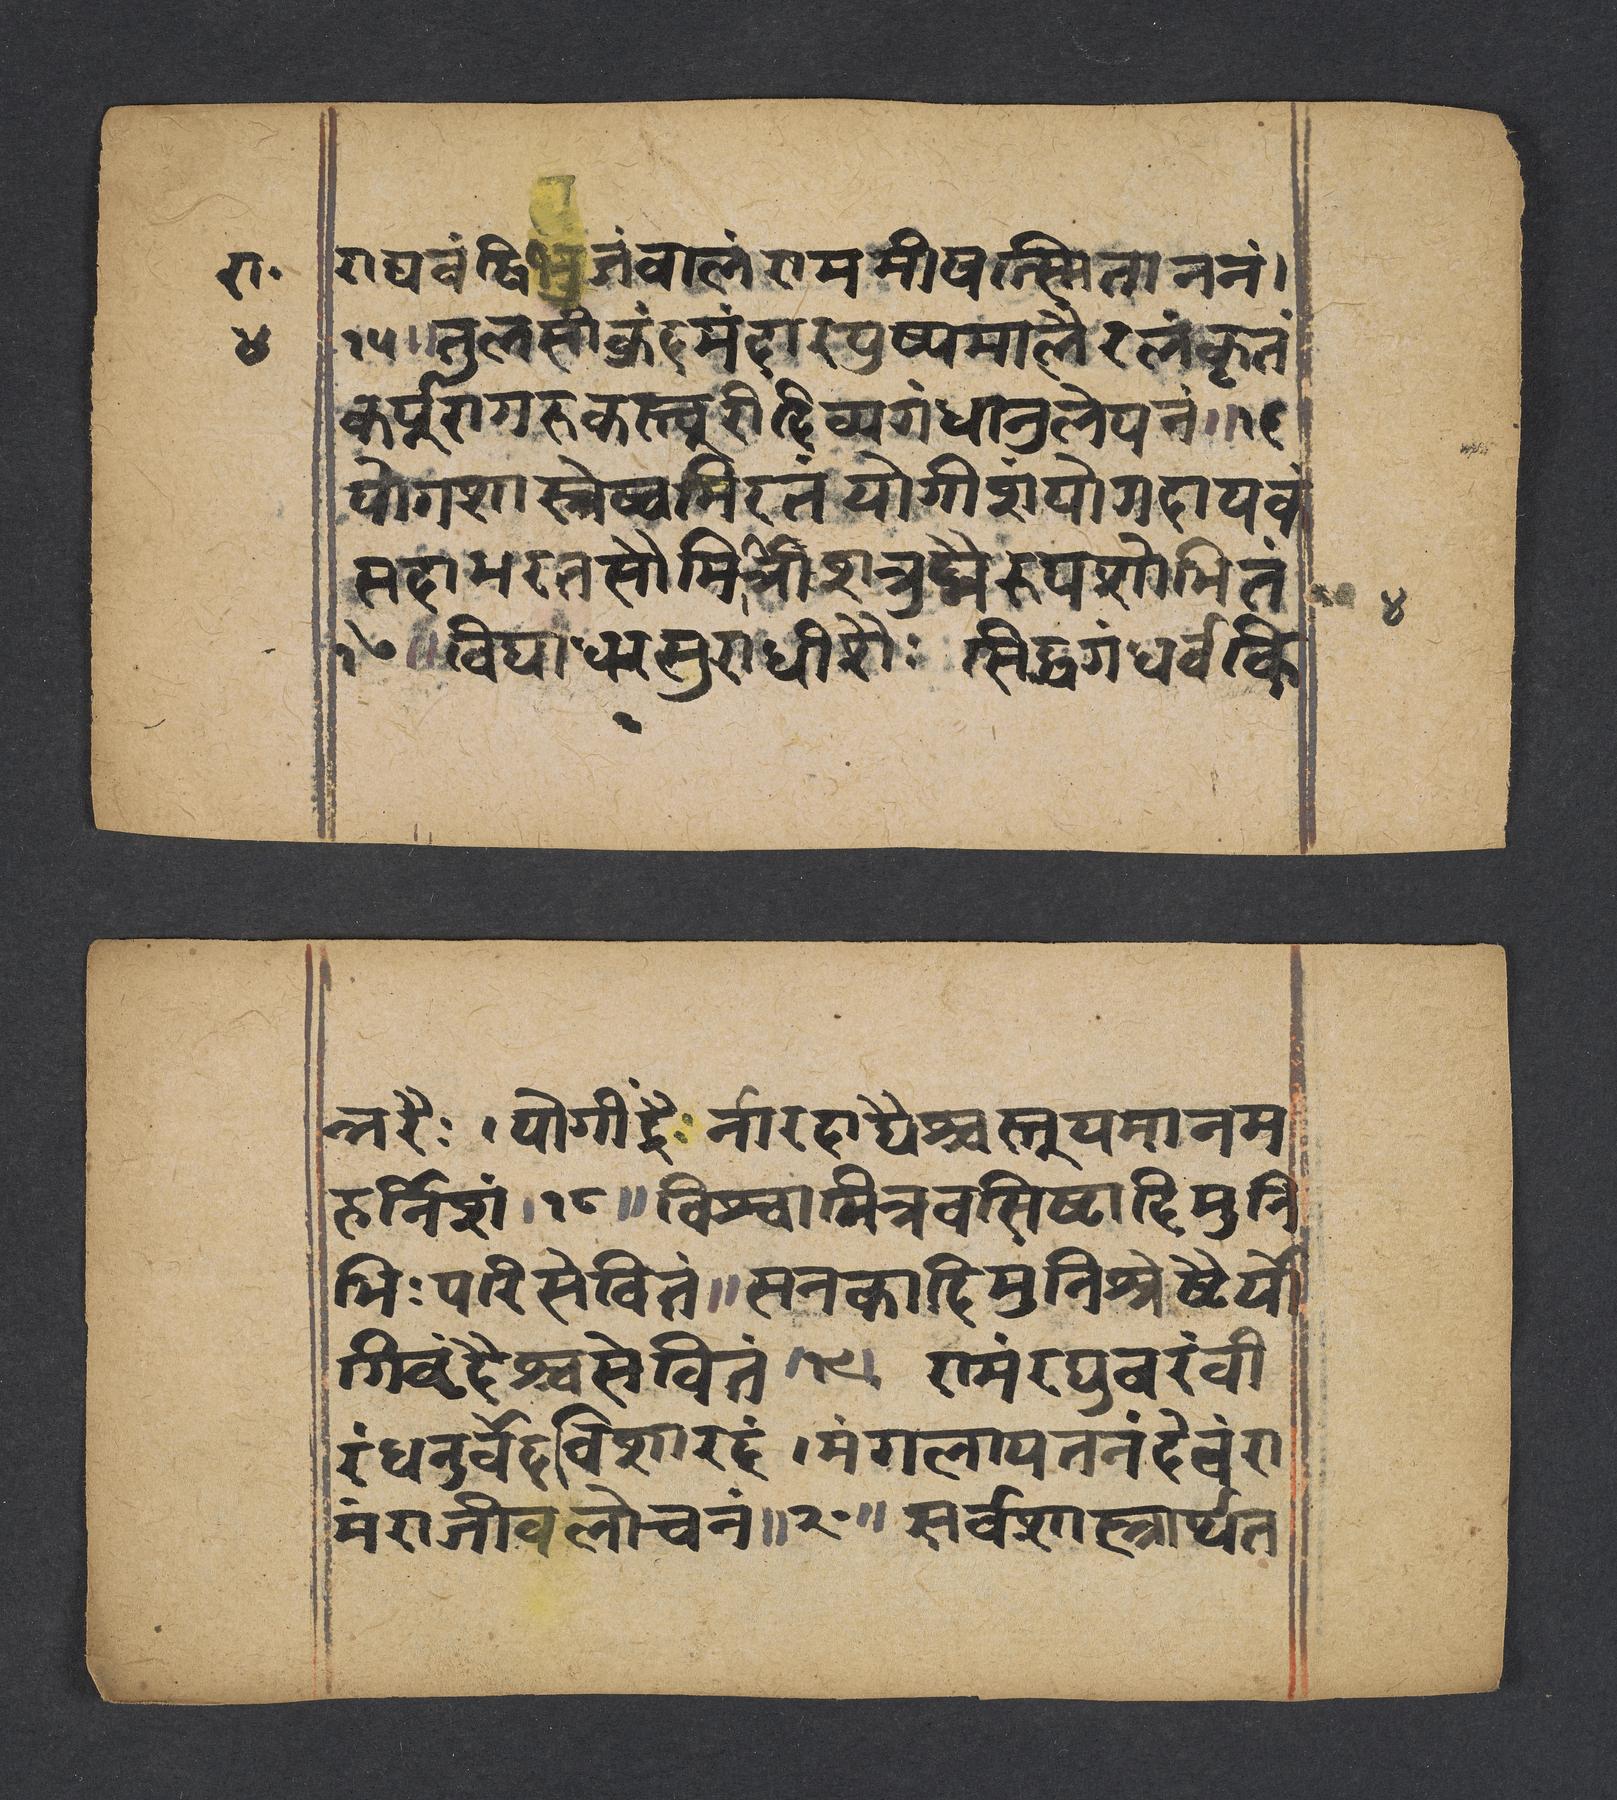 रा॰ राघवं द्विभुजं वालं राममीषत्स्मिताननं।
४ १५॥ तुलसीकुंदमंदारपुष्पमालैरलंकृतं
कर्पुरागरुकस्तुरीदिव्यगंधानुलेपनं॥१६
योगशास्त्रेष्वभिरतं योगीशं योगदायवं
सदाभरतसौमित्रीशत्रुघ्नैरुपशोभितं ४
१७॥ विद्याधरसुराधीशैः सिद्धगंधर्वकि
न्नरैः।योगींद्रैःर्नारदाद्यैश्चस्तुयमानम
हर्निशं।१८॥ विश्वामित्रवसिष्टादिमुनि
भिःपरिसेवितं॥सनकादिमुनिश्रेष्टैर्यो
गिवृंदैश्चसेवितं।१९। रामं रघुवरं वी
रं धनुर्वेदविशारदं।मंगलायतनं देवं रा
मं राजीवलोचनं॥२०॥ सर्वशास्त्रार्थत